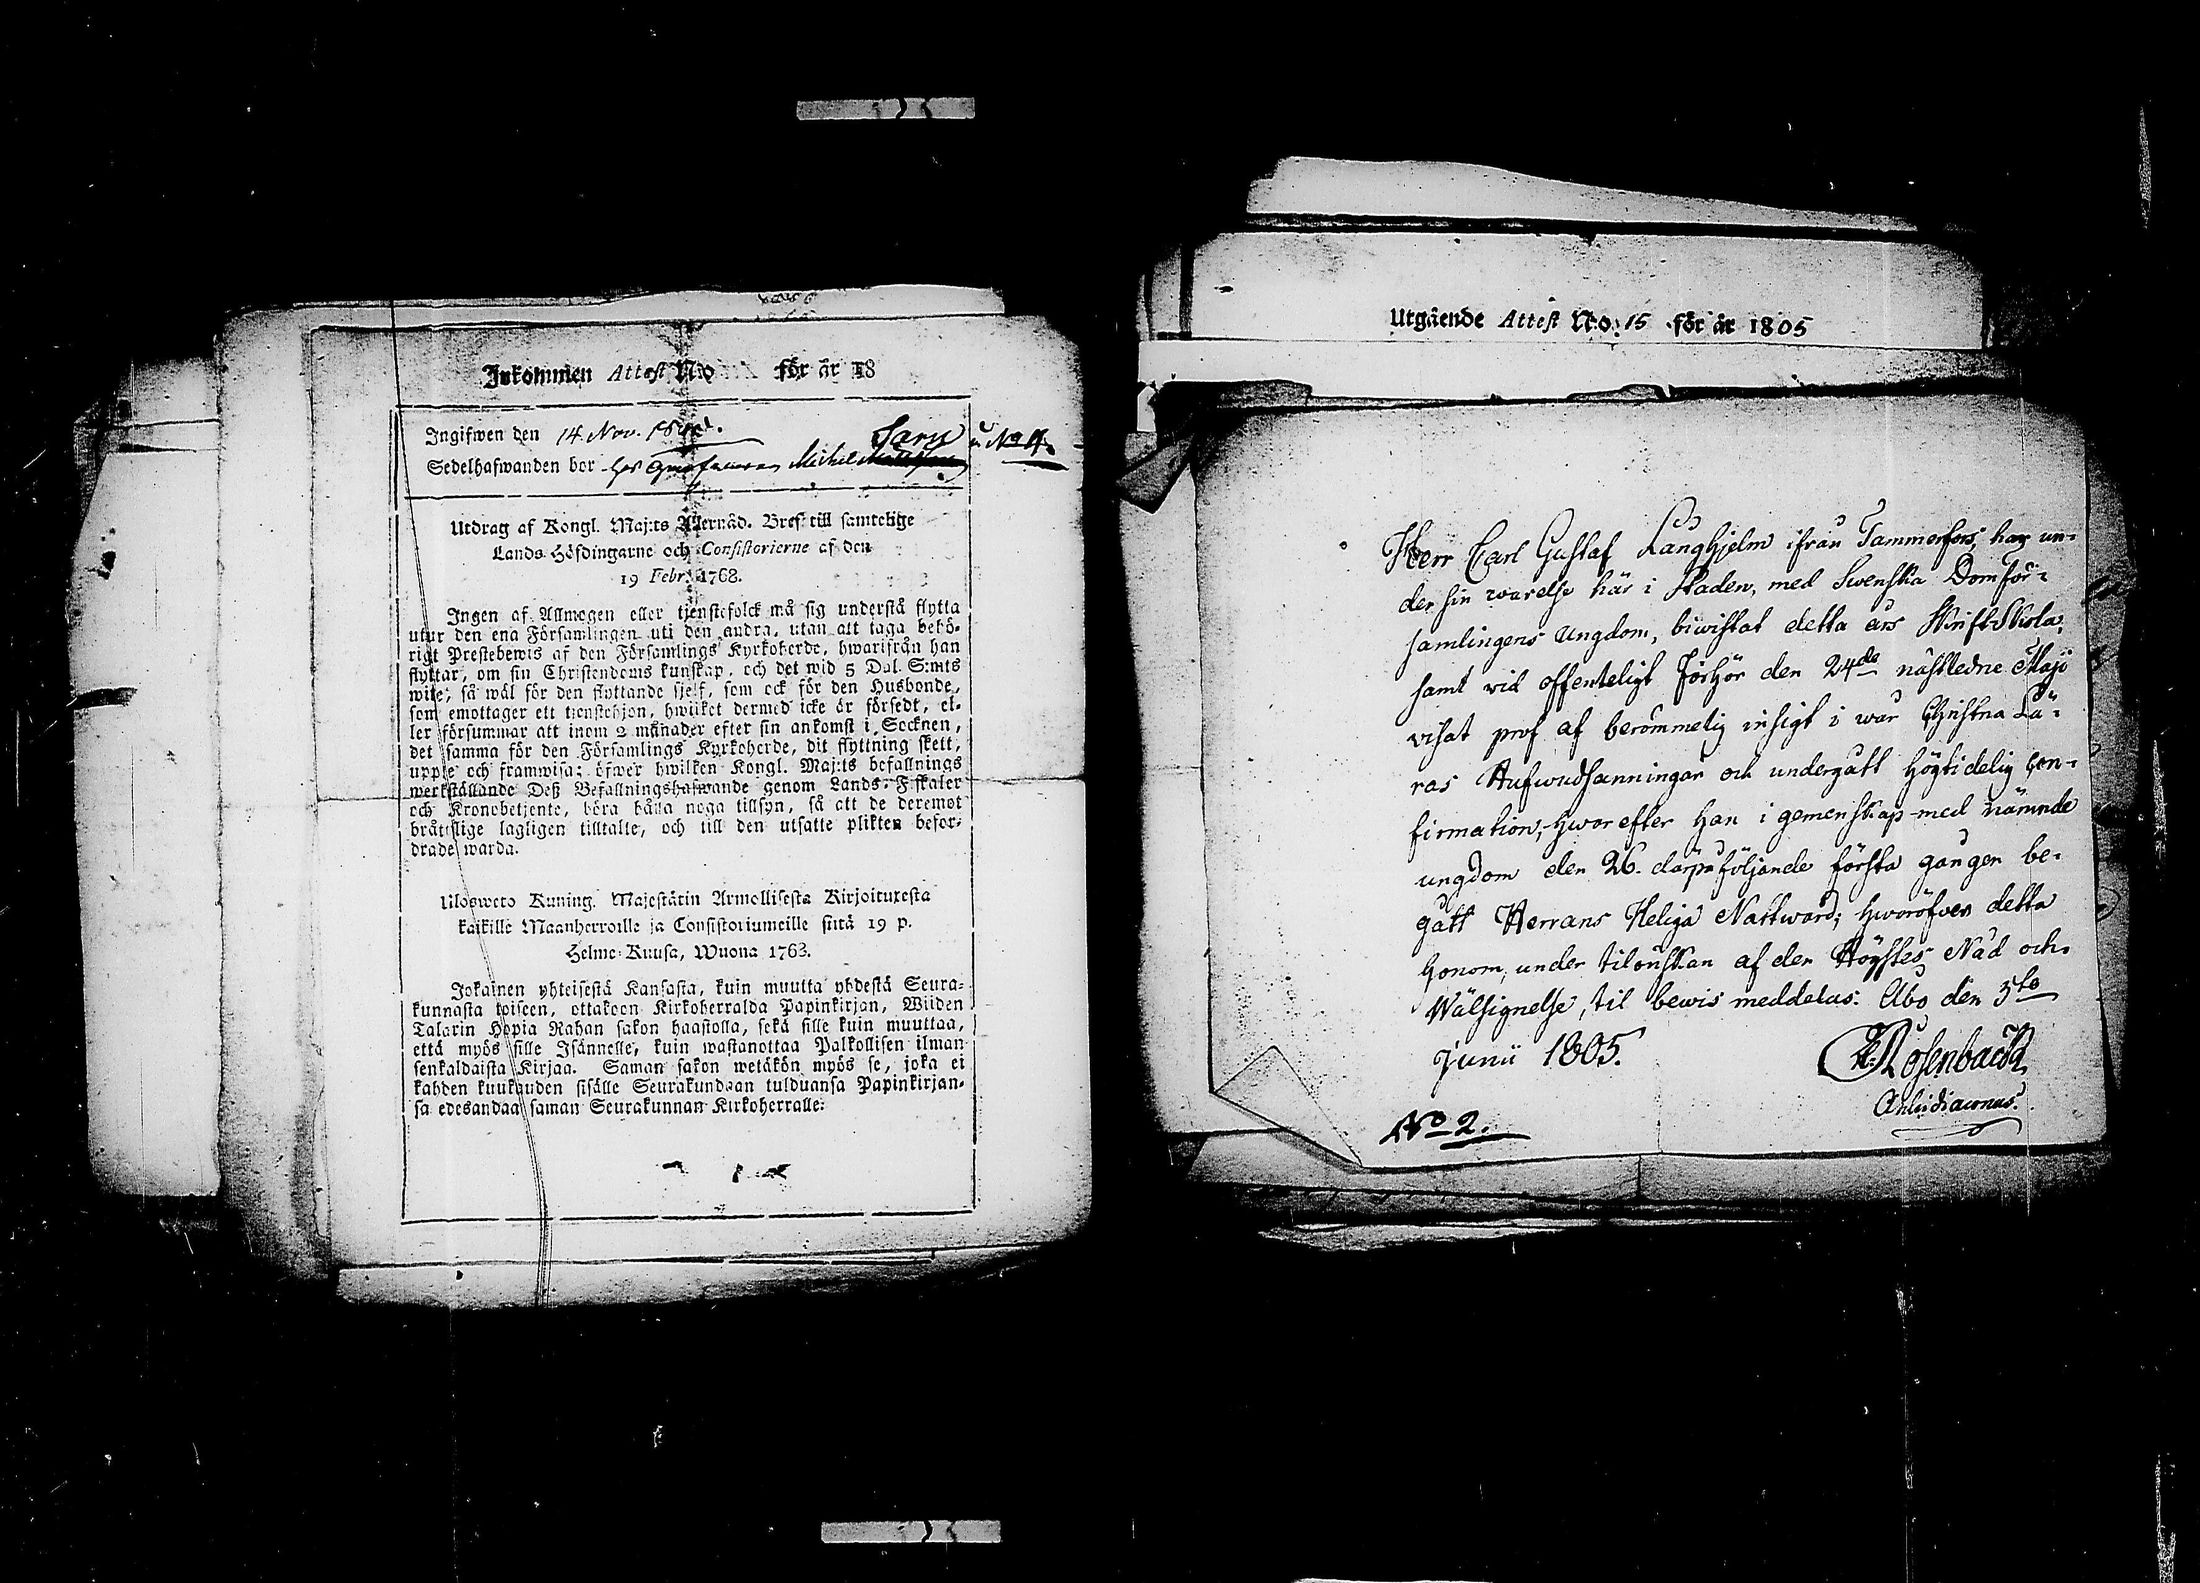 Inkommen Attest No för år 18
Ingifwen den 14 Nov.
Sedelhafwanden bor hos Michel
Saru No 4.
Utdrag af Kongl. Maj:ts Allernåd. Bref till samtelige
Lands-Höfdingarne och Consistorierne af den
19 Febr. 1768.
Ingen af Allmogen eller tjenstefolck må sig understå flytta
utur den ena Församlingen uti den andra, utan att taga behö-
rigt Prestebewis af den Församlings Kyrkoherde, hwarifrån han
flyttar, om sin Christendoms kunskap, och det wid 5 Dal. S:mts
wite; så wäl för den flyttande sjelf, som ock för den Husbonde,
som emottager ett tjenstehjon, hwilket dermed icke är försedt, el-
ler försummar att inom 2 månader efter sin ankomst i Socknen,
det samma för den Församlings Kyrkoherde, dit flyttning skett,
uppte och framwisa; öfwer hwilken Kongl. Maj:ts befallnings
werkställande Deß Befallningshafwande genom Lands-Fiskaler
och Kronobetjente, böra hålla noga tillsyn, så att de deremot
bråttslige lagligen tilltalte, och till den utsatte plikten befor-
drade warda.
Ulosweto Kuning. Majestätin Armollisesta Kirjoituxesta
kaikille Maanherroille ja Consistoriumeille siitä 19 p.
Helme-Kuusa, Wuona 1763.
Jokainen yhteisestä Kansasta, kuin muutta yhdestä Seura-
kunnasta toiseen, ottakoon Kirkoherralda Papinkirjan, Wiiden
Talarin Hopia Rahan sakon haastolla, sekä sille kuin muuttaa,
että myös sille Isännelle, kuin wastanottaa Palkollisen ilman
senkaldaista Kirjaa. Saman sakon wetäkön myös se, joka ei
kahden kuukauden sisälle Seurakundaan tulduansa Papinkirjan-
sa edesandaa saman Seurakunnan Kirkoherralle.
Utgående Attest No: 15 för år 1805
Herr Carl Gustaf Langhjelm ifrån Tammerfors, har un-
der sin warelse här i Staden, med Swenska Domför-
samlingens Ungdom, biwistat detta års Skrift-Skola,
samt vid offenteligt Förhör den 24de nästledne Maji
visat prof af berömmelig insigt i wår Christna Lä-
ras Hufwudsanningar och undergått högtidelig Con-
firmation, hwarefter han i gemenskap med nämnde
ungdom den 26. därpåföljande första gången be-
gått Herrans Heliga Nattward; hworöfver detta
honom, under tilönskan af den Högstes Nåd och
Wälsignelse, til bewis meddelas. Åbo den 5te
Junii 1805.
Rosenback
Archidiaconus.
No 2.